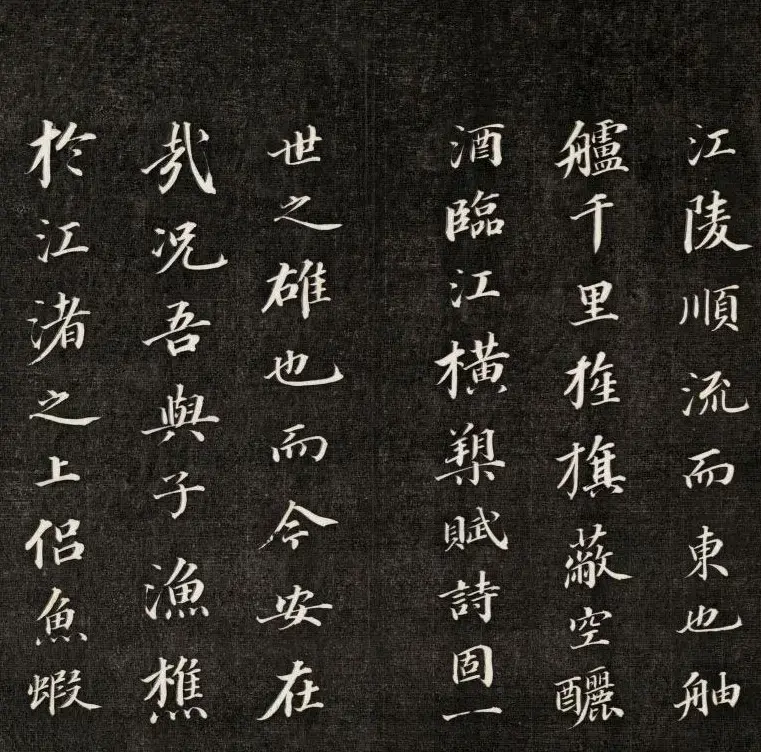 江陵順流而東也舳
艫千里旌旗蔽空釃
酒臨江橫槊賦詩固一
世之雄也而今安在
哉況吾與子漁樵
於江渚之上侶魚蝦